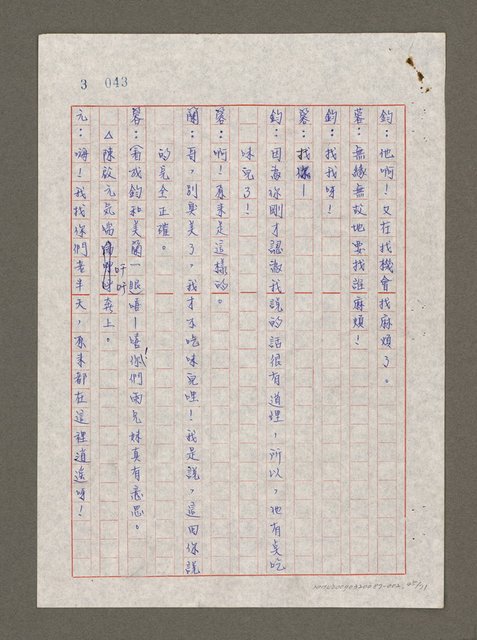 3 043
鈞：他啊！又在找機會找麻煩了。
蓉：無緣無故地要找誰麻煩！
鈞：找我呀！
蓉：找你—
鈞：因為你剛才認為我說的話很有道理，所以，他有點吃
味兒了！
蓉：啊！原來是這樣的。
蘭：哥，別臭美了，我才不吃味兒哩！我是說，這回你說
的完全正確。
蓉：（看成鈞和美蘭一眼）嘻—嘻！你們兩兄妹真有意思。
△陳啟元氣喘吁吁奔上。
元：嗨！我找你們老半天，原來都在這裡逍遙呀！